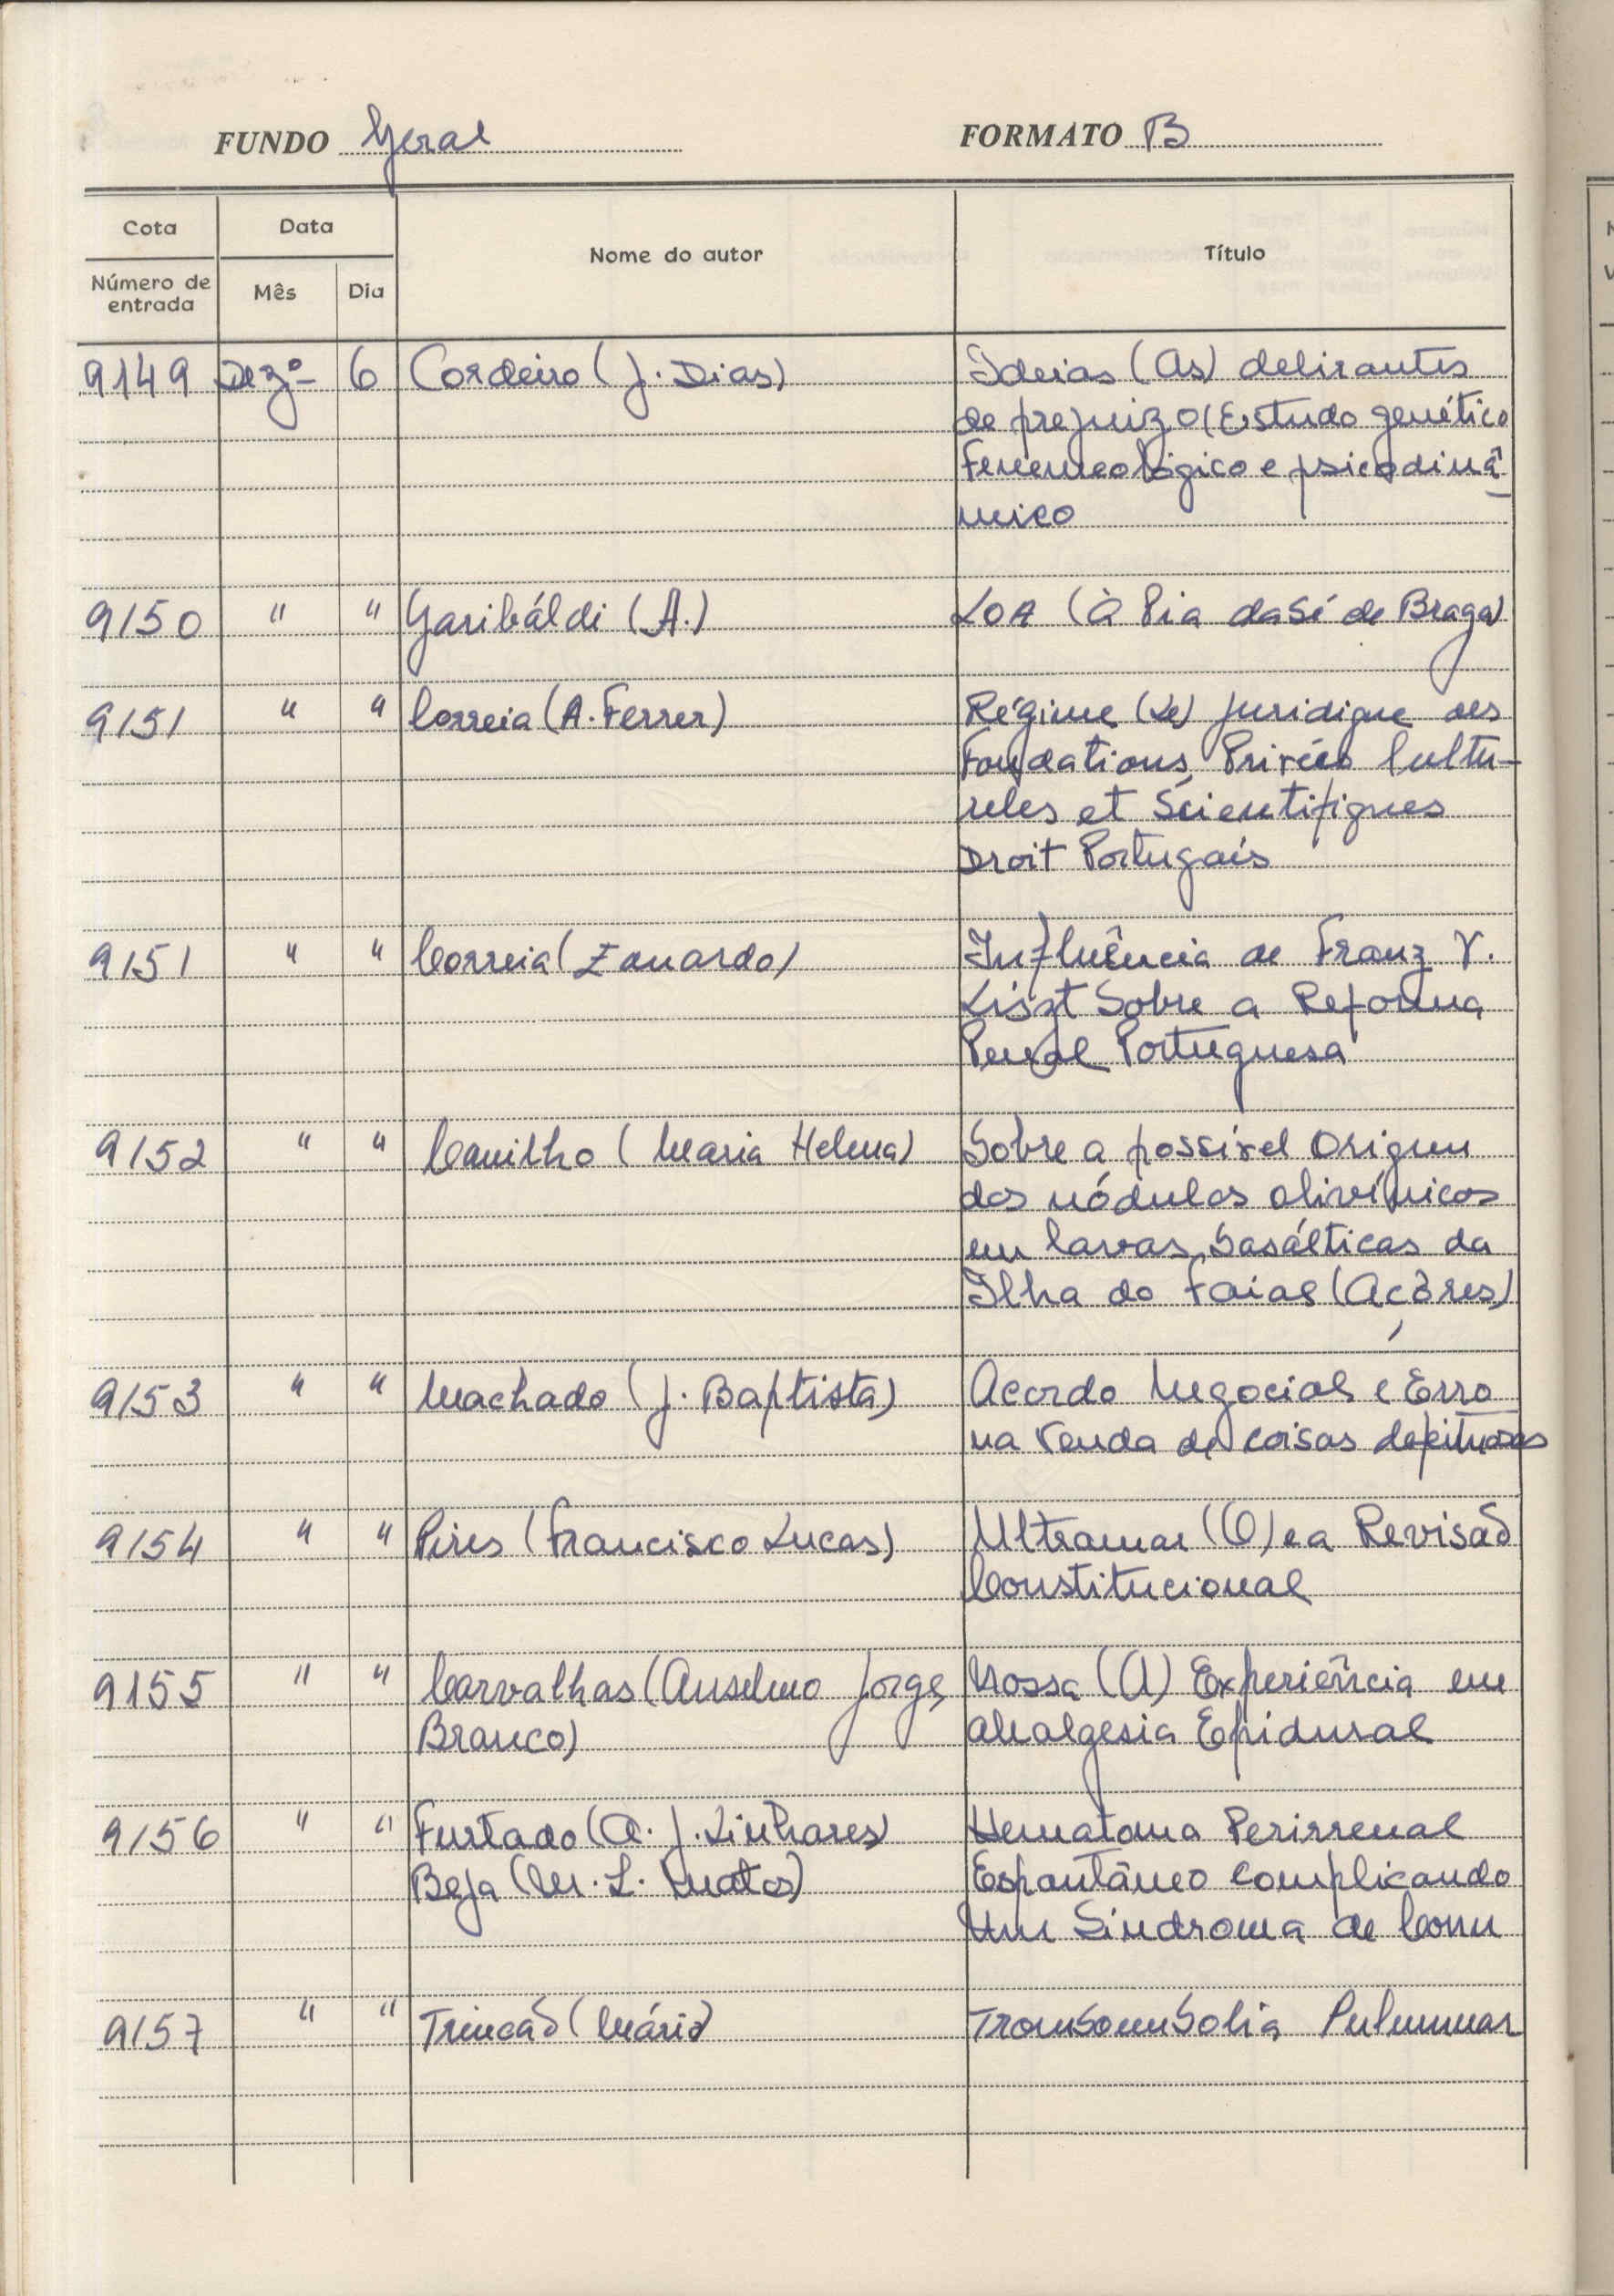 FUNDO Geral FORMATO B
Cota Data Nome do autor Título
Número de entrada Mês Dia
9149 Dezº 6 Cordeiro (J. Dias) Ideias (As) delirantes
de prejuizo (Estudo genético
Fenemeológico e psicodinâ-
mico
9150 " " Garibáldi (A.) LOA (À Pia da Sé de Braga)
9151 " " Correia (A. Ferrer) Régime (Le) Juridique des
Foundations Privées Cultu-
reles et Scientifiques
Droit Portugais
9151 " " Correia (Eduardo) Influência de Franz V.
Liszt Sobre a Reforma
Penal Portuguesa
9152 " " Canilho (Maria Helena) Sobre a possível Origem
dos nódulos olivínicos
em lavas basálticas da
Ilha do Faial (Açôres)
9153 " " Machado (J. Baptista) Acordo Negocial e Erro
na Venda de coisas defeituosas
9154 " " Pires (Francisco Lucas) Ultramar (O) e a Revisão
Constitucional
9155 " " Carvalhas (Anselmo Jorge Nossa (A) Experiência em
Branco) Analgesia Epidural
9156 " " Furtado (A. J. Linhares) Hematoma Perirrenal
Beja (M. L. Matos) Espontâneo Complicando
Um Síndroma de Conn
9157 " " Trincão (Mário) Tromboembolia Pulmunar